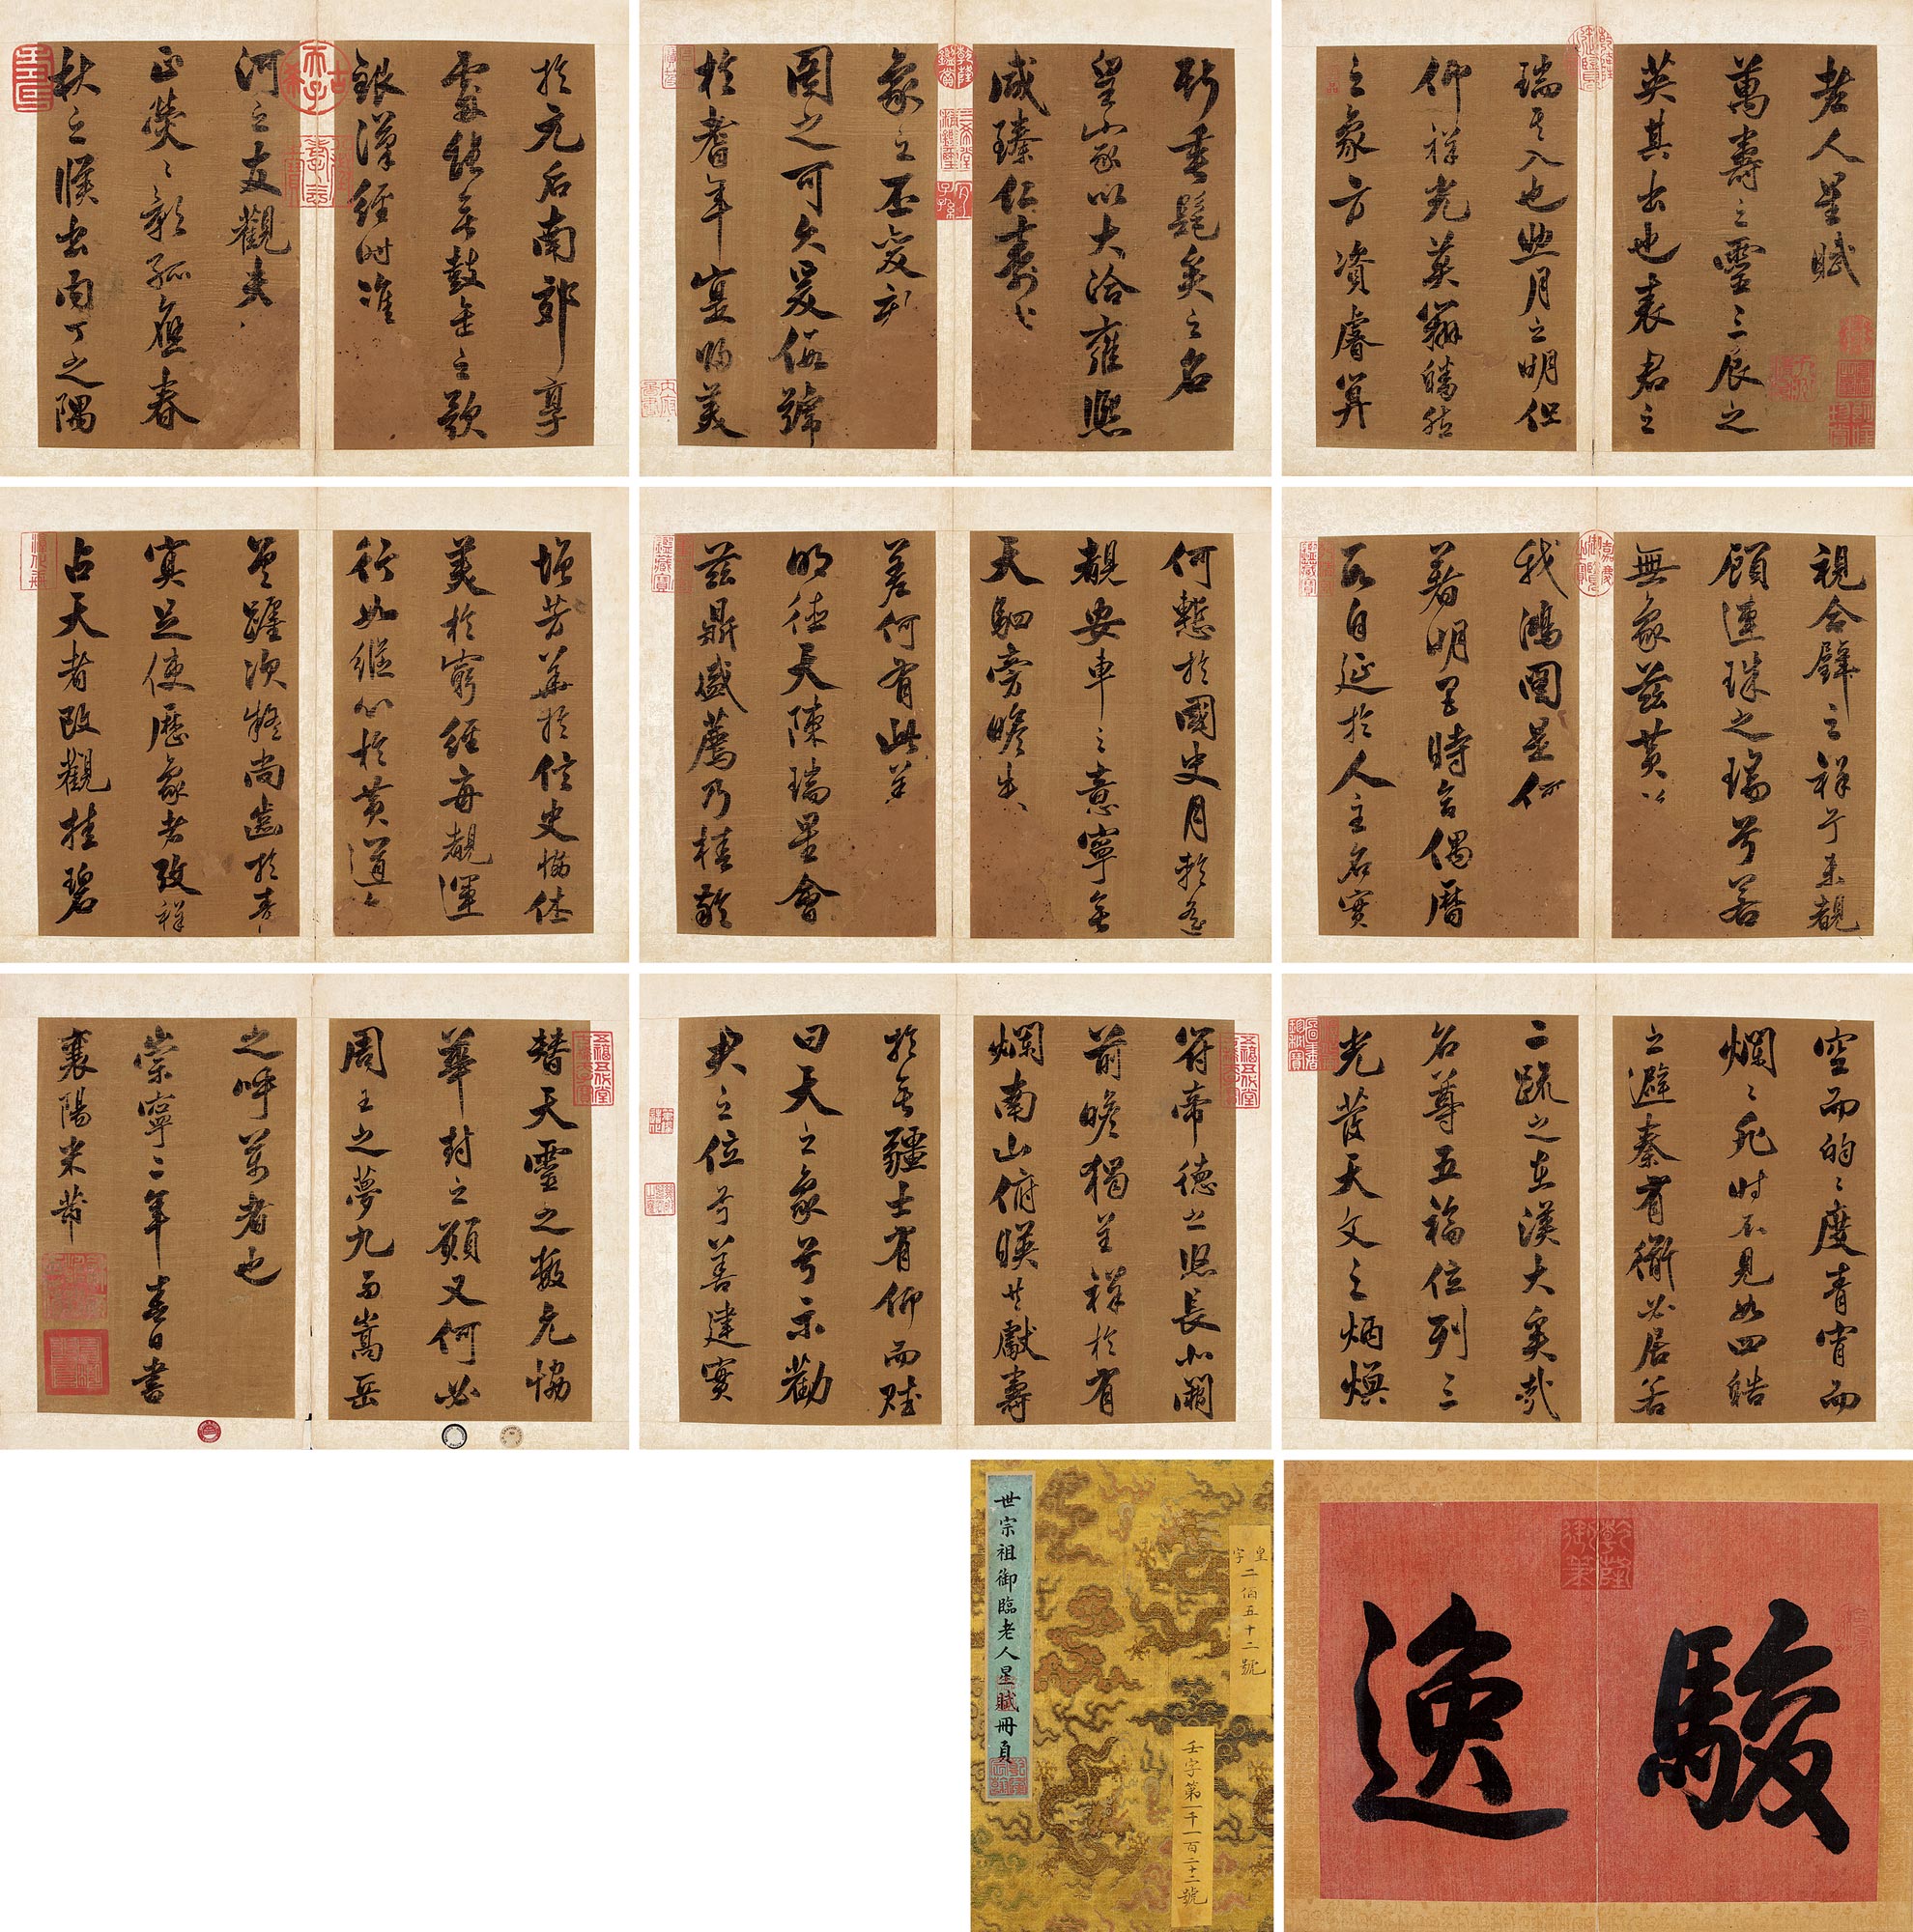 老人星賦
萬壽之靈三辰之
英其出也表君之
瑞其入也 月之明但
仰祥光莫辨皤然
之象方資睿算
斯垂髦矣之名
皇家以大洽雍熙
咸臻仁壽
象之丕变
圖之可久爰 號
於耆年寔昭美
於元后南郊享
處能無鼓缶之歌
銀漢經時準
河之友觀夫
正熒〻影孤應春
秋之候出丙丁之隅
視合璧之祥兮未覩
顧連珠之瑞兮若
無象茲蓂以
我鴻圖是何
著明罕時舍偶曆
數自延於人主名實
何慙於國史月軫遙
覩安車之意寧無
天駟旁瞻失
差何有此
明德天陳瑞星會
茲鼎盛薦乃椿齡
增芳華於信史播休
美於窮經每覩運
行如縱心於黃道
躔次疑尚齒於青
冥足使歷象者攷祥
占天者改觀挂碧
空而的〻度青霄而
爛〻 時不見如四皓
之避秦有衢必居若
二疏之在漢大矣哉
名尊五福位列三
光發天文之炳煥
符帝德之照長北闕
前瞻獨呈祥於有
爛南山俯暎共獻壽
於無疆士有仰而賦
曰天之象兮示勸
君之位兮善建實
贊天靈之數允協
華封之願又何必
周王之夢九而嵩岳
之呼萬者也
崇寧二年春日書
襄陽米芾
駿逸
乾隆御筆
皇字二佰五十二號
壬字第一千一百二十二號
世宗祖御臨老人星賦冊頁